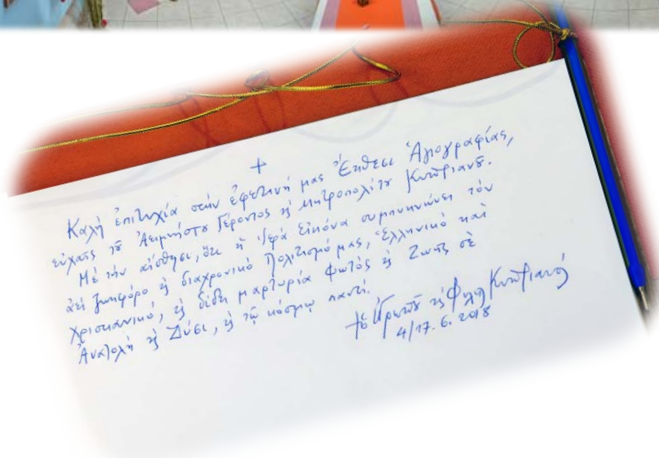 +
Καλὴ ἐπιτυχία στὴν ἐφετεινή μας Ἔκθεσι Ἁγιογραφίας,
εὐχαῖς τοῦ Ἀειμνήστου Γέροντος ϗ Μητροπολίτου Κυπριανοῦ.
Μὲ τὴν αἴσθησι, ὅτι ἡ Ἱερὰ Εἰκόνα συμπυκνώνει τὸν
ἀεὶ ζωηφόρο ϗ διαχρονικὸ Πολιτισμό μας, Ἑλληνικὸ καὶ
Χριστιανικό, ϗ δίδει μαρτυρία Φωτὸς ϗ Ζωῆς σὲ
Ἀνατολὴ ϗ Δύσι, ϗ τῷ κόσμῳ παντί.
† ὁ Ὠρωποῦ ϗ Φυλῆς Κυπριανός
4/17. 6. 2018